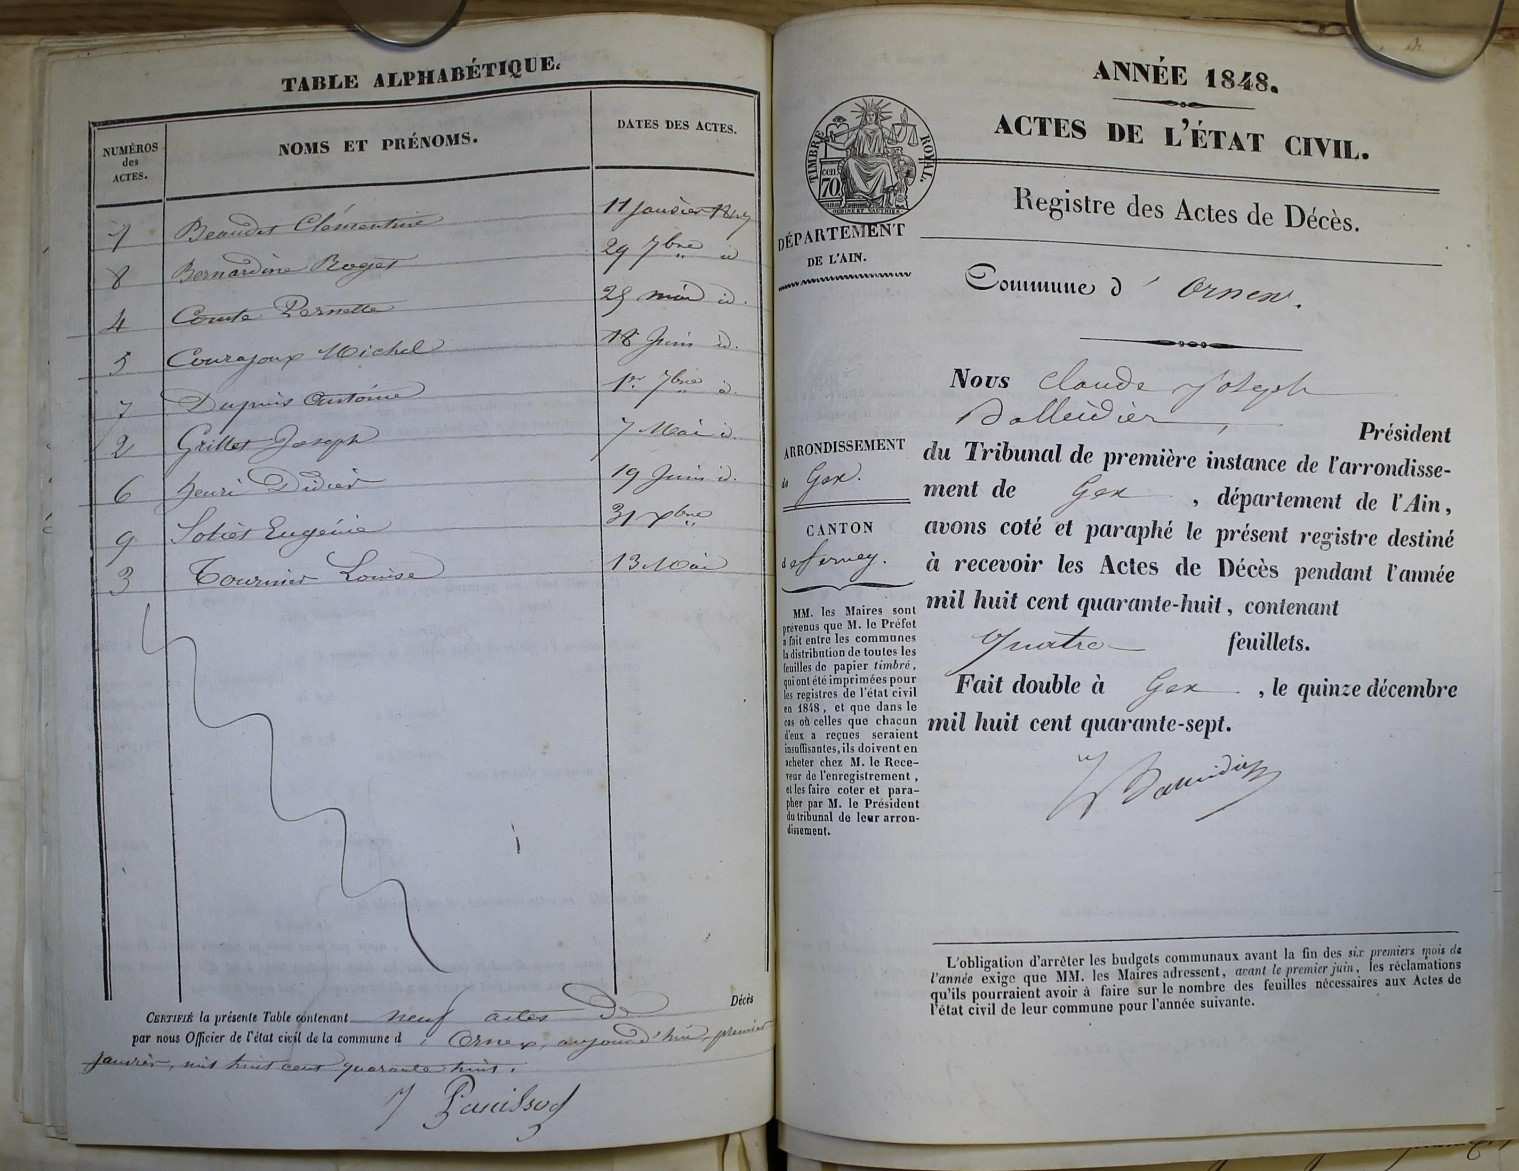 TABLE ALPHABÉTIQUE.
NUMÉROS
des
ACTES.
NOMS ET PRÉNOMS.
DATES DES ACTES.
1 Beaudet Clémentine 11 Janvier 1847
8 Bernardine Roget 29 7bre id
4 Comte Pernette 25 mai id.
5 Courajoux Michel 18 Juin id.
7 Dupuis Antoine 1er 7bre id.
2 Grillet Joseph 7 Mai id.
6 henri Didier 19 Juin id.
9 Soliet Eugénie 31 xbre
3 Tournier Louise 13 Mai
CERTIFIÉ la présente Table contenant neuf actes De Décès
par nous Officier de l'état civil de la commune d' Ornex, aujourd'hui premier
janvier, mil huit cent quarante huit.
ANNÉE 1848.
ACTES DE L'ÉTAT CIVIL.
TIMBRE ROYAL.
cen
70
Registre des Actes de Décès.
DÉPARTEMENT
DE L'AIN.
Commune d' Ornex.
Nous Claude Joseph
Balleidier, Président
du Tribunal de première instance de l'arrondisse-
ment de Gex, département de l'Ain,
avons coté et paraphé le présent registre destiné
à recevoir les Actes de Décès pendant l'année
mil huit cent quarante-huit, contenant
quatre feuillets.
Fait double à Gex, le quinze décembre
mil huit cent quarante-sept.
ARRONDISSEMENT
de Gex.
CANTON
de ferney.
MM. les Maires sont
prévenus que M. le Préfet
a fait entre les communes
la distribution de toutes les
feuilles de papier timbré,
qui ont été imprimées pour
les registres de l'état civil
en 1848, et que dans le
cas où celles que chacun
d'eux a reçues seraient
insuffisantes, ils doivent en
acheter chez M. le Rece-
veur de l'enregistrement,
et les faire coter et para-
pher par M. le Président
du tribunal de leur arron-
dissement.
L'obligation d'arrêter les budgets communaux avant la fin des six premiers mois de
l'année exige que MM. les Maires adressent, avant le premier juin, les réclamations
qu'ils pourraient avoir à faire sur le nombre des feuilles nécessaires aux Actes de
l'état civil de leur commune pour l'année suivante.